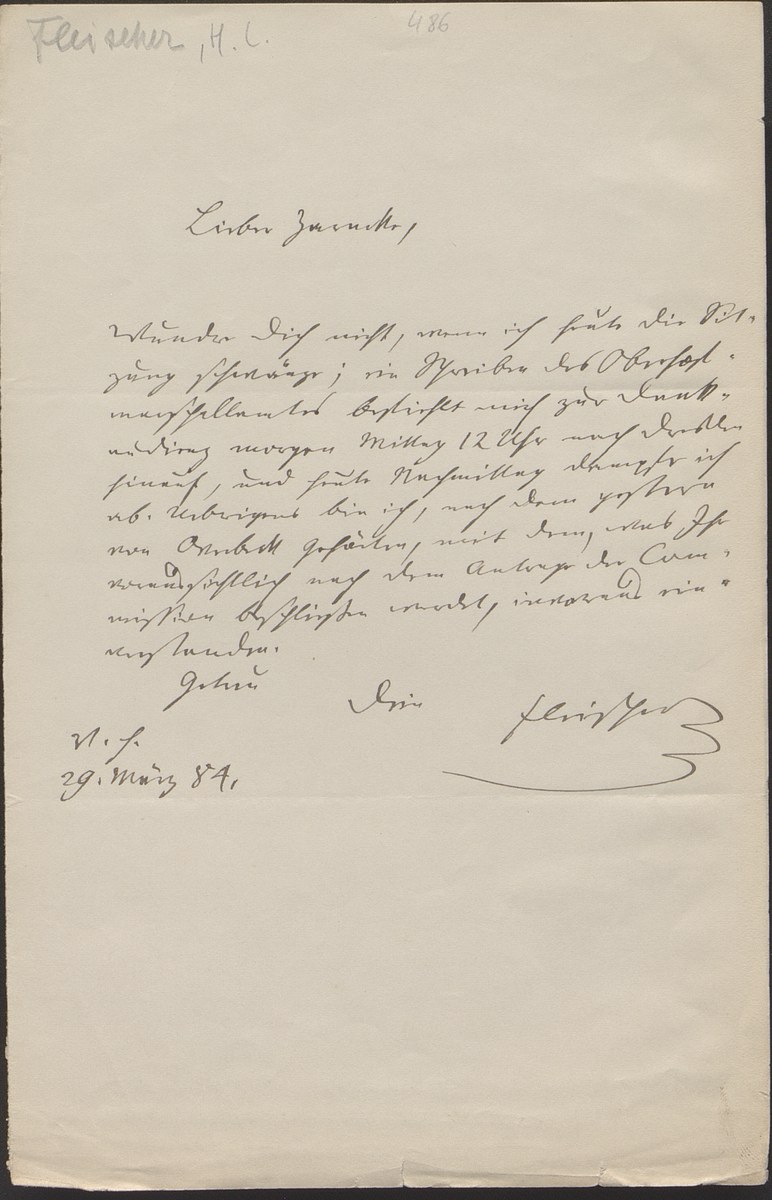 Fleischer, H. L.
486
Lieber Zarncke,
Wundre Dich nicht, wenn ich heute die Sit-
zung schwänze; ein Schreiben des Oberhof-
marschallamtes bestiehlt mich zur Dank-
audienz morgen Mittag 12 Uhr nach Dresden
hinauf, und heute Nachmittag dampfe ich
ab. Uebrigens bin ich, nach dem gestern
von Overbeck Gehörten, mit dem, was Ihr
voraussichtlich nach dem Antrage der Com-
mission beschließen werdet, imvoraus ein-
verstanden.
Getreu
Dein Fleischer
V. H.
29. März 84.